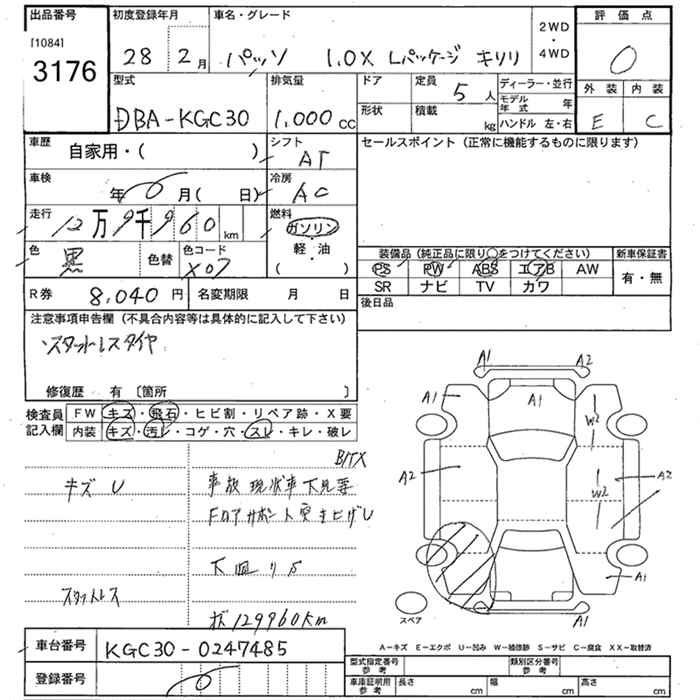 出品番号 初度登録年月 車名・グレード 2WD・4WD 評価点
[1084]
3176 28年 2月 パッソ 1.0X Lパッケージ キリリ 0
外装 内装
E C
型式 排気量 ドア 定員 5人 ディーラー・並行
DBA-KGC30 1,000cc 形状 積載 kg モデル年式 年
ハンドル 左・右
車歴 自家用・( ) シフト AT セールスポイント (正常に機能するものに限ります)
車検 年 0 月( 日) 冷房 AC
走行 12万9千960km 燃料 ガソリン・軽・油 ( )
色 黒 色替 色コード X07
装備品(純正品に限り○をつけてください) 新車保証書
PS PW ABS エアB AW 有・無
SR ナビ TV カワ
R券 8,040円 名変期限 月 日 後日品
注意事項申告欄 (不具合内容等は具体的に記入して下さい)
スタットレスタイヤ
修復歴 有 〔箇所 〕
検査員記入欄 FW キズ・飛石・ヒビ割・リペア跡・X要
内装 キズ・汚レ・コゲ・穴・スレ・キレ・破レ
キズ U
事故 現状車 下見要
スタットレス
129960km
A1 A2
A1 A1 W2
A2 W2 A2
A1
スペア A1
A-キズ E-エクボ U-凹み W-補修跡 S-サビ C-腐食 XX-取替済
車台番号 KGC30-0247485
型式指定番号 参考 類別区分番号 参考
登録番号 0
車庫証明用 参考 長さ cm 幅 cm 高さ cm